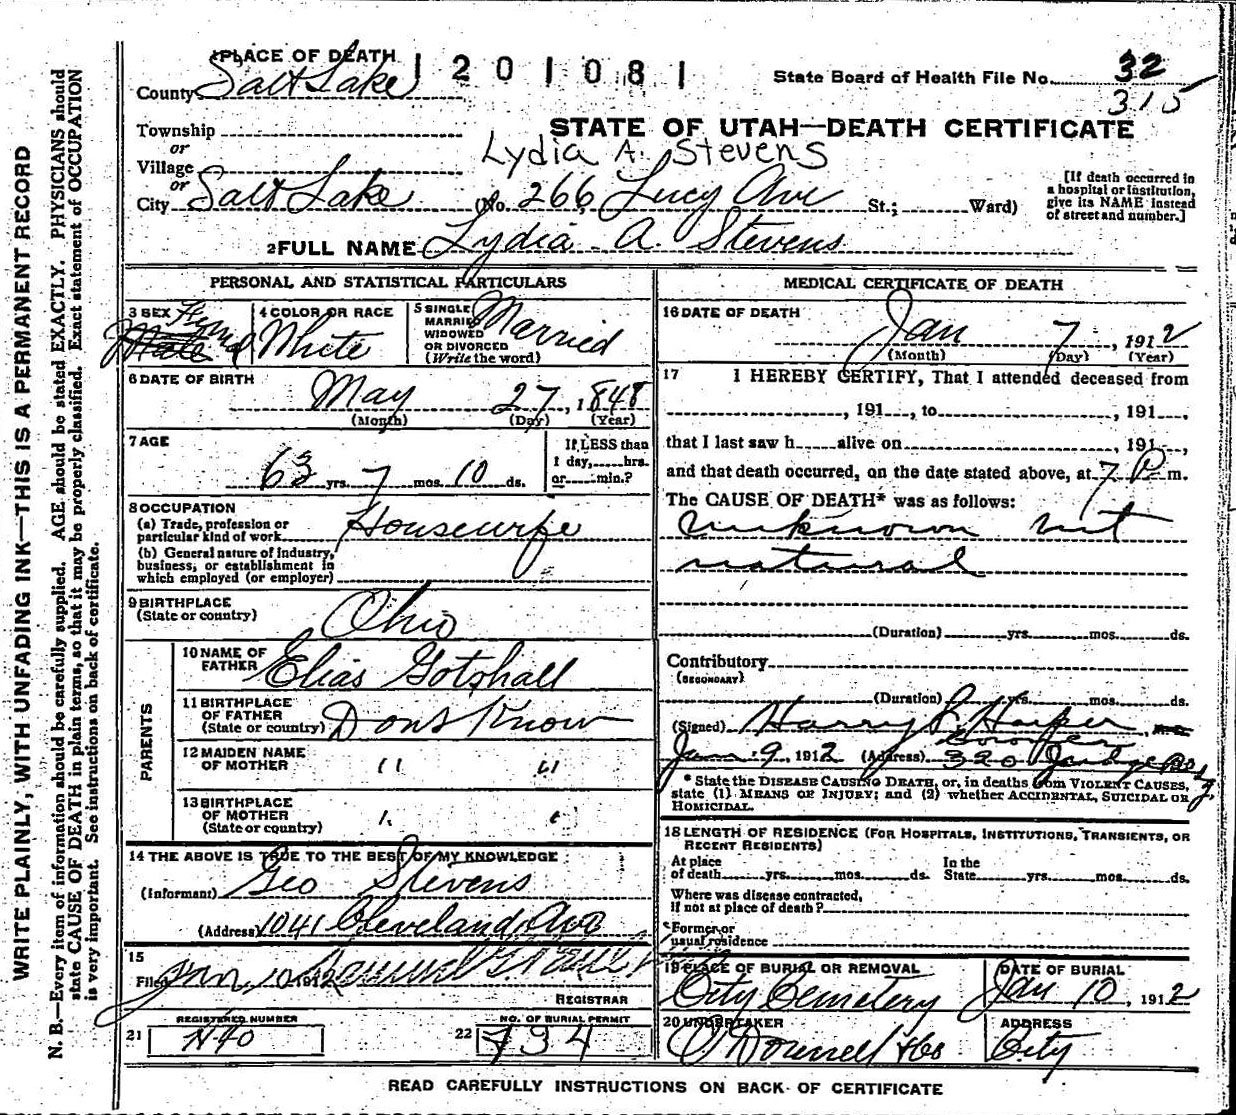 1 PLACE OF DEATH 1 2 0 1 0 8 1
State Board of Health File No. 32
315
County Salt Lake
Township
or
Village
or
City Salt Lake
STATE OF UTAH—DEATH CERTIFICATE
Lydia A. Stevens
(No. 266 Lucy Ave St.; Ward)
[If death occurred in
a hospital or institution,
give its NAME instead
of street and number.]
2 FULL NAME Lydia A. Stevens
PERSONAL AND STATISTICAL PARTICULARS
3 SEX Male
4 COLOR OR RACE White
5 SINGLE
MARRIED
WIDOWED
OR DIVORCED
(Write the word) Married
6 DATE OF BIRTH
May 27, 1848
(Month) (Day) (Year)
7 AGE
63 yrs. 7 mos. 10 ds.
If LESS than
1 day, hrs.
or min.?
8 OCCUPATION
(a) Trade, profession or
particular kind of work Housewife
(b) General nature of industry,
business, or establishment in
which employed (or employer)
9 BIRTHPLACE
(State or country) Ohio
PARENTS
10 NAME OF
FATHER Elias Gotshall
11 BIRTHPLACE
OF FATHER
(State or country) Dont Know
12 MAIDEN NAME
OF MOTHER " "
13 BIRTHPLACE
OF MOTHER
(State or country) " "
14 THE ABOVE IS TRUE TO THE BEST OF MY KNOWLEDGE
(Informant) Geo Stevens
(Address) 1041 Cleveland Ave
15
Filed Jan 10 1912 Samuel G.
REGISTRAR
REGISTERED NUMBER
21 H40
NO. OF BURIAL PERMIT
22 734
MEDICAL CERTIFICATE OF DEATH
16 DATE OF DEATH
Jan 7, 1912
(Month) (Day) (Year)
17 I HEREBY CERTIFY, That I attended deceased from
, 191 , to , 191 ,
that I last saw h alive on , 191 ,
and that death occurred, on the date stated above, at 7 P m.
The CAUSE OF DEATH* was as follows:
unknown but
natural
(Duration) yrs. mos. ds.
Contributory
(SECONDARY)
(Duration) yrs. mos. ds.
(Signed) Harry S Harper
Coroner
Jan 9, 1912 (Address) 320 Judge Bldg.
* State the DISEASE CAUSING DEATH, or, in deaths from VIOLENT CAUSES,
state (1) MEANS OF INJURY; and (2) whether ACCIDENTAL, SUICIDAL OR
HOMICIDAL.
18 LENGTH OF RESIDENCE (FOR HOSPITALS, INSTITUTIONS, TRANSIENTS, OR
RECENT RESIDENTS)
At place
of death yrs. mos. ds.
In the
State yrs. mos. ds.
Where was disease contracted,
If not at place of death?
Former or
usual residence
19 PLACE OF BURIAL OR REMOVAL
City Cemetery
DATE OF BURIAL
Jan 10, 1912
20 UNDERTAKER
O'Donnell & Co
ADDRESS
City
READ CAREFULLY INSTRUCTIONS ON BACK OF CERTIFICATE
WRITE PLAINLY, WITH UNFADING INK—THIS IS A PERMANENT RECORD
N. B.—Every item of information should be carefully supplied. AGE should be stated EXACTLY. PHYSICIANS should
state CAUSE OF DEATH in plain terms, so that it may be properly classified. Exact statement of OCCUPATION
is very important. See instructions on back of certificate.